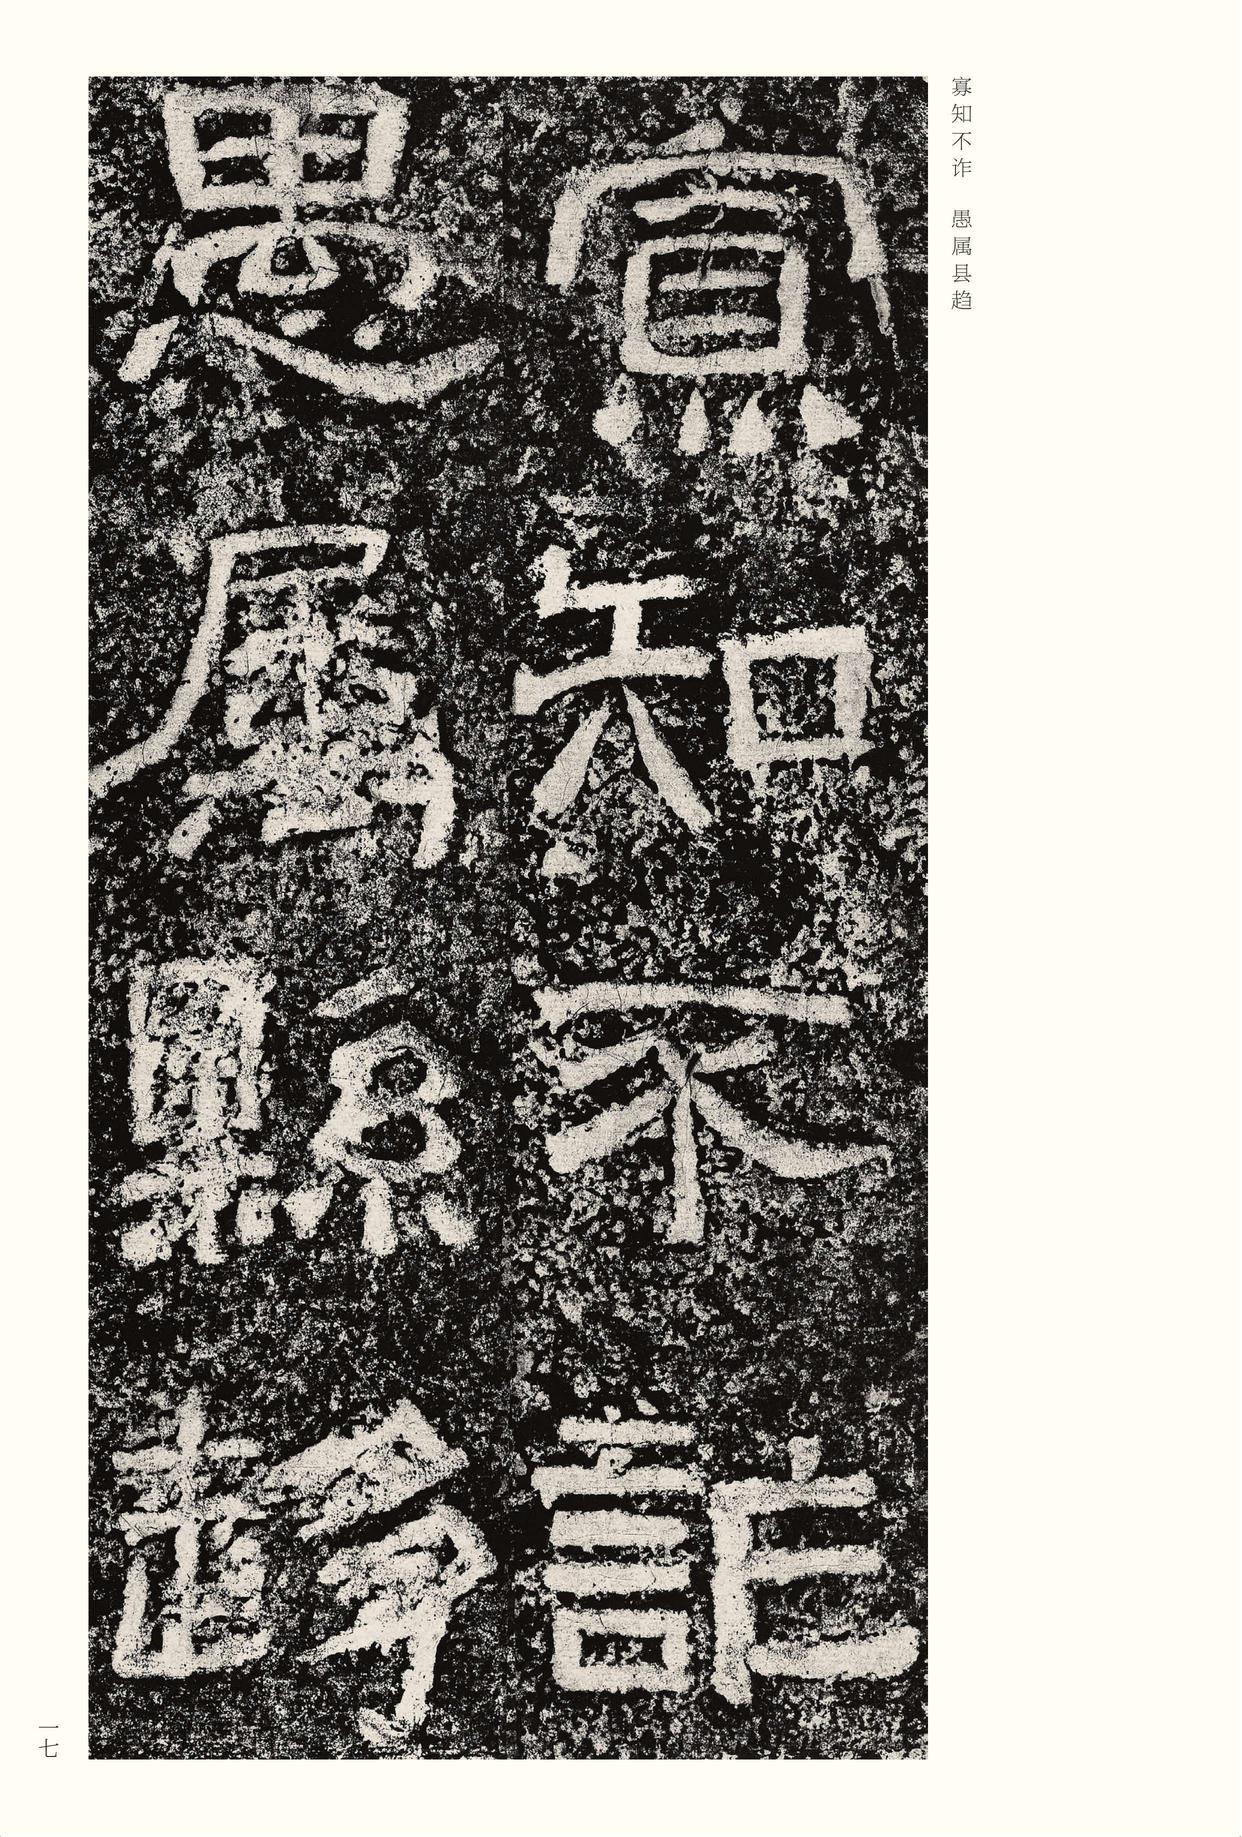 寡知不诈　愚属县趋
寡知不詐
愚屬縣趍
一七